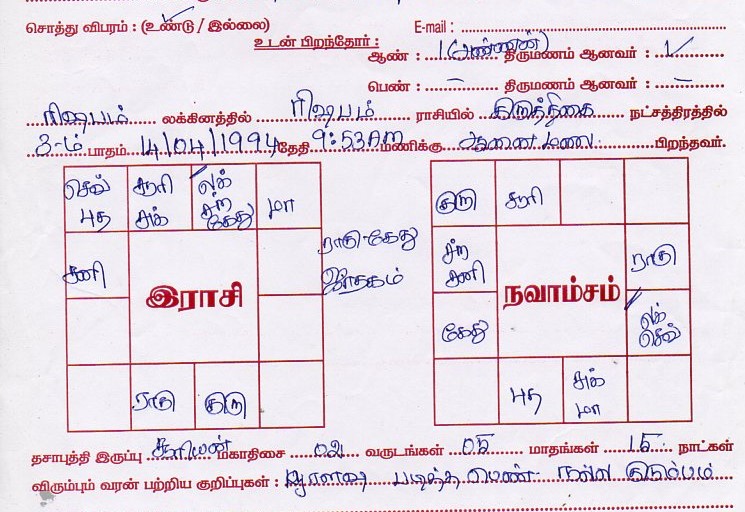 சொத்து விபரம் : (உண்டு / இல்லை)
E-mail :
உடன் பிறந்தோர் :
ஆண் : 1 (அண்ணன்) திருமணம் ஆனவர் : 1
பெண் : – திருமணம் ஆனவர் : –
ரிஷபம் லக்கினத்தில் ரிஷபம் ராசியில் கிருத்திகை நட்சத்திரத்தில்
3-ம் பாதம் 14/04/1994 தேதி 9:53AM மணிக்கு ஆனைமலை பிறந்தவர்.
செவ் புத
சூரி சுக்
லக் சந்ற கேது
மா
சனி
இராசி
ராகு
குரு
ராகு-கேது
ஜாதகம்
குரு
சூரி
சந்ற சனி
ராகு
நவாம்சம்
கேது
லக் செவ்
புத
சுக் மா
தசாபுத்தி இருப்பு சூரியன் மகாதிசை 02 வருடங்கள் 05 மாதங்கள் 15 நாட்கள்
விரும்பும் வரன் பற்றிய குறிப்புகள் : ஓரளவு படித்த பெண் நல்ல குடும்பம்